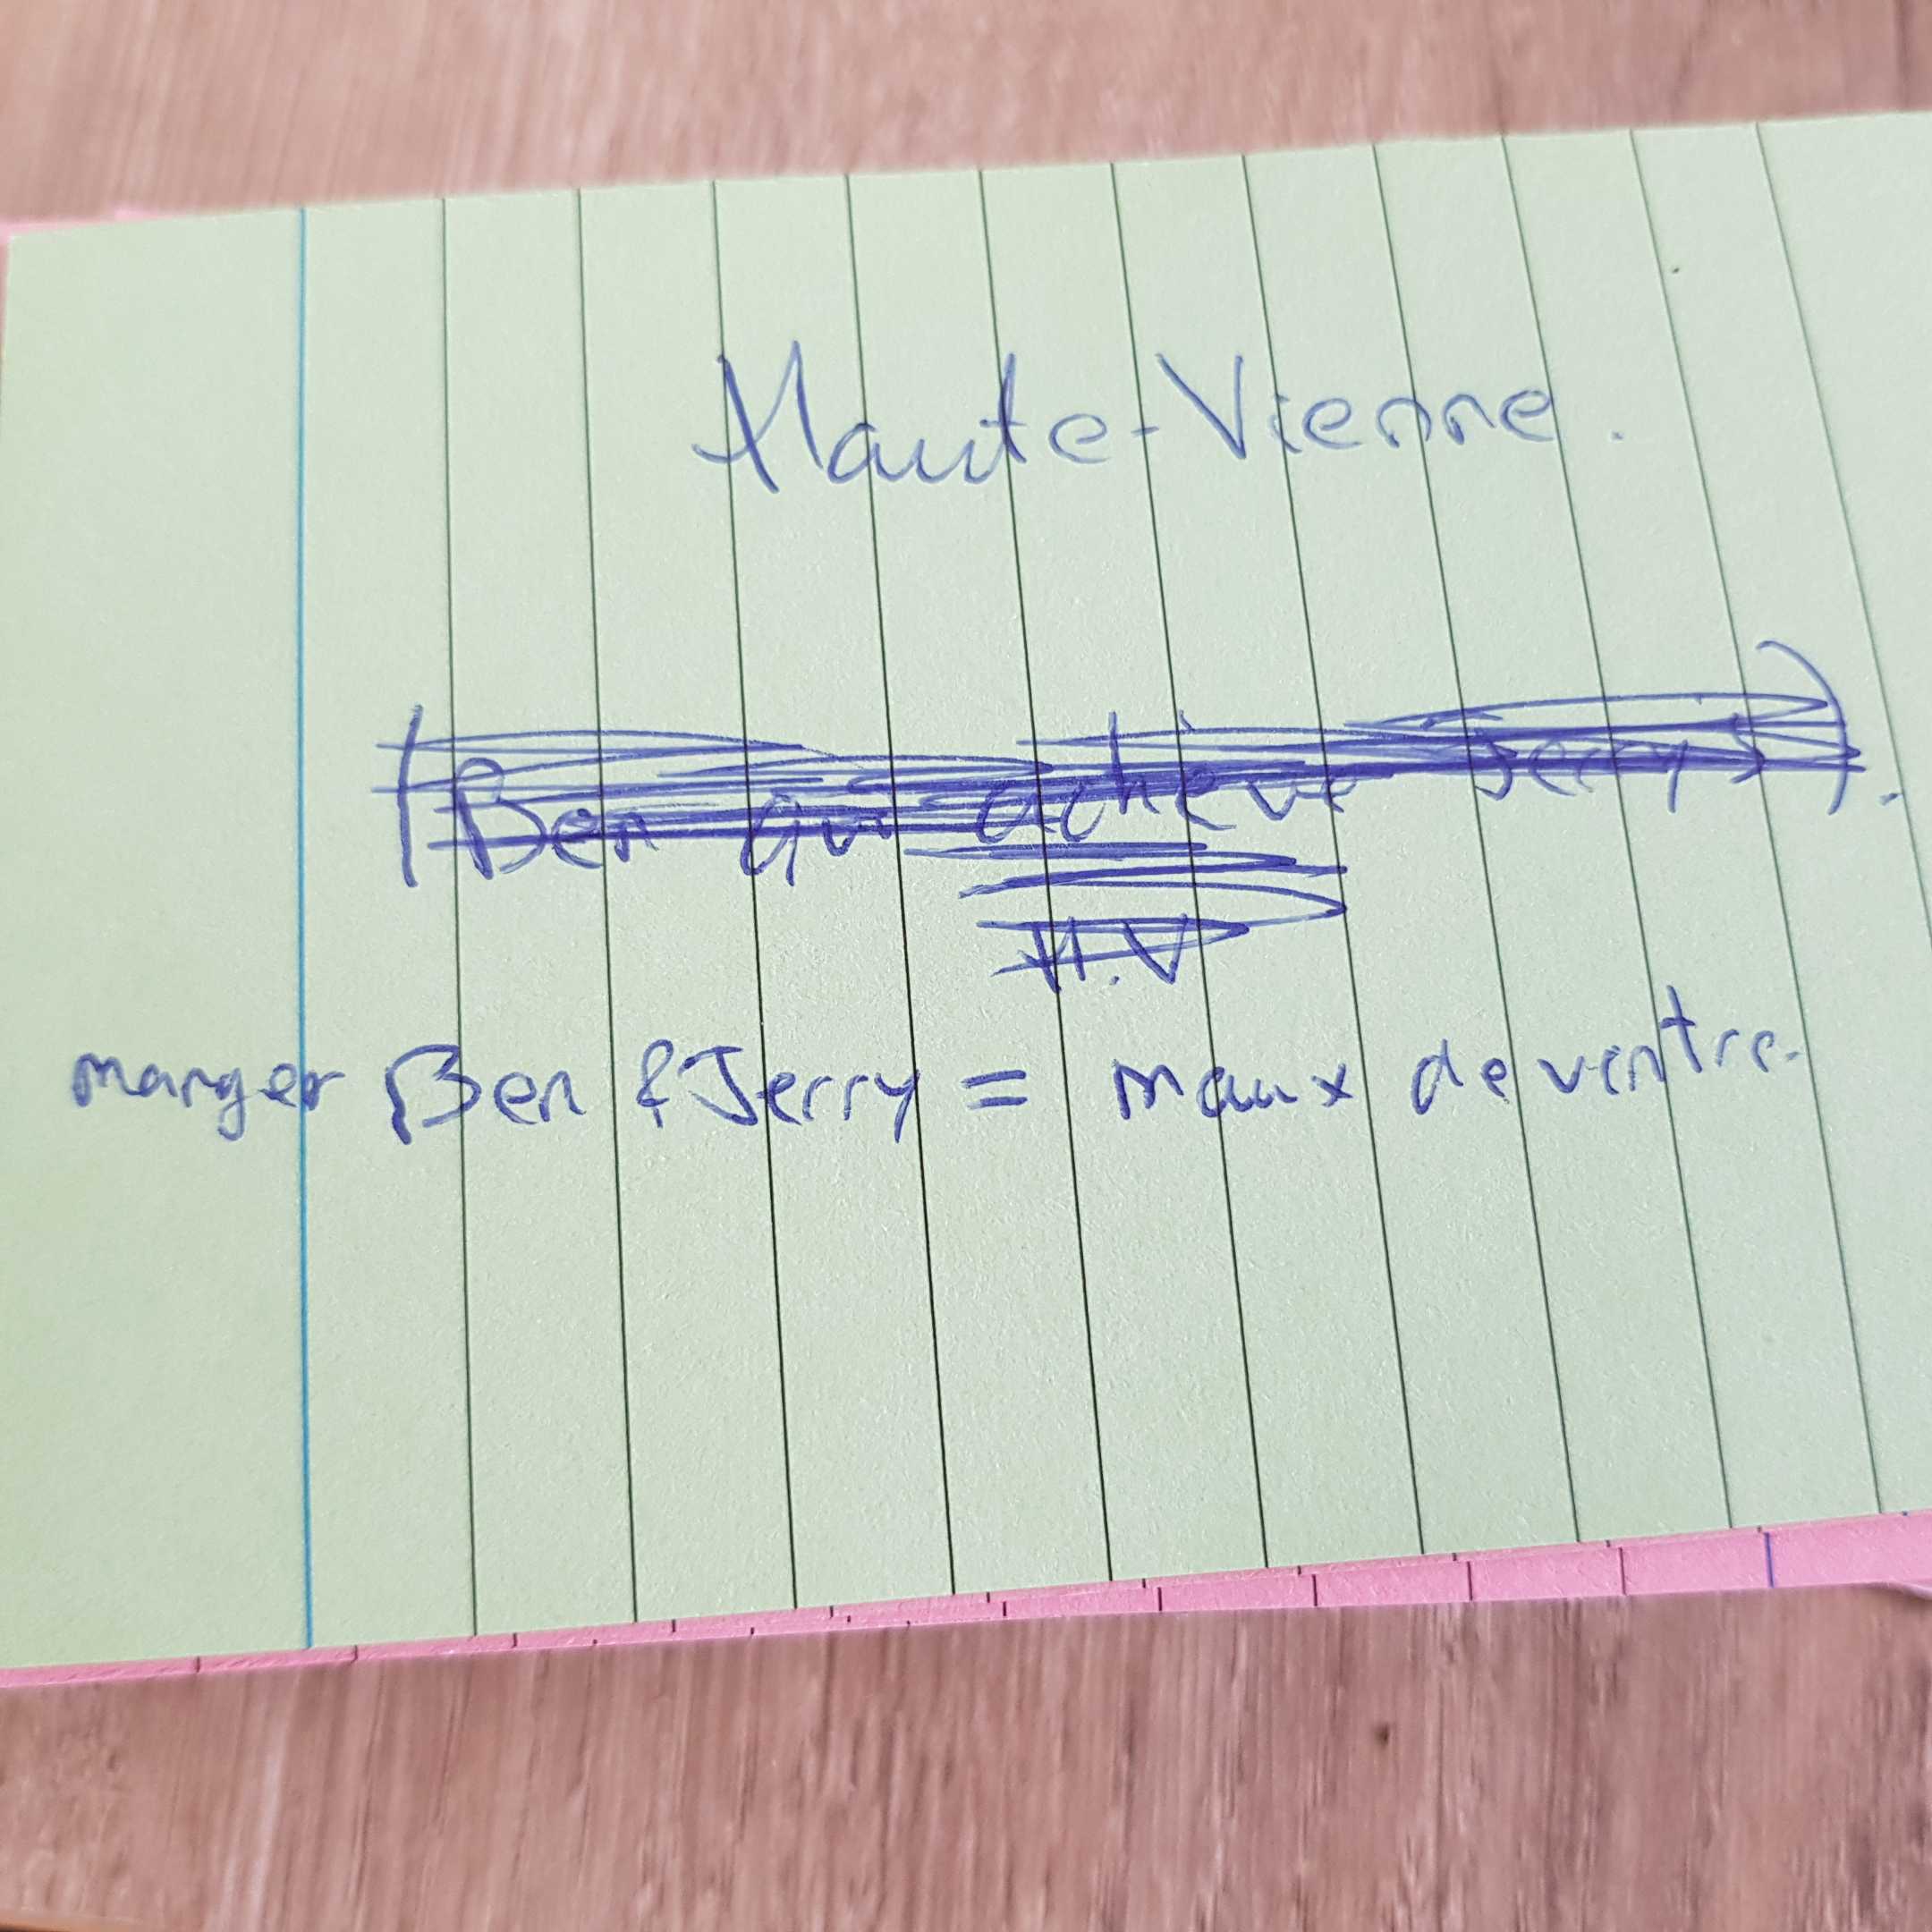 Haute-Vienne.
(Ben qui achève Jerry).
H.V
manger Ben & Jerry = maux de ventre.